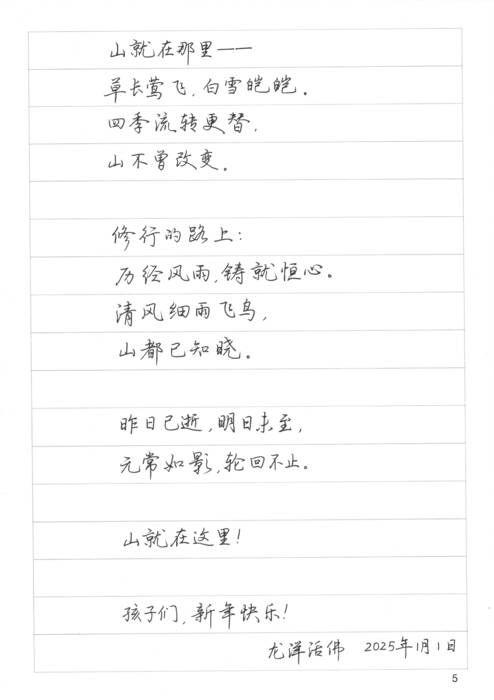 山就在那里——
草长莺飞，白雪皑皑。
四季流转更替，
山不曾改变。
修行的路上：
历经风雨，铸就恒心。
清风细雨飞鸟，
山都已知晓。
昨日已逝，明日未至，
无常如影，轮回不止。
山就在这里！
孩子们，新年快乐！
龙洋活佛 2025年1月1日
5